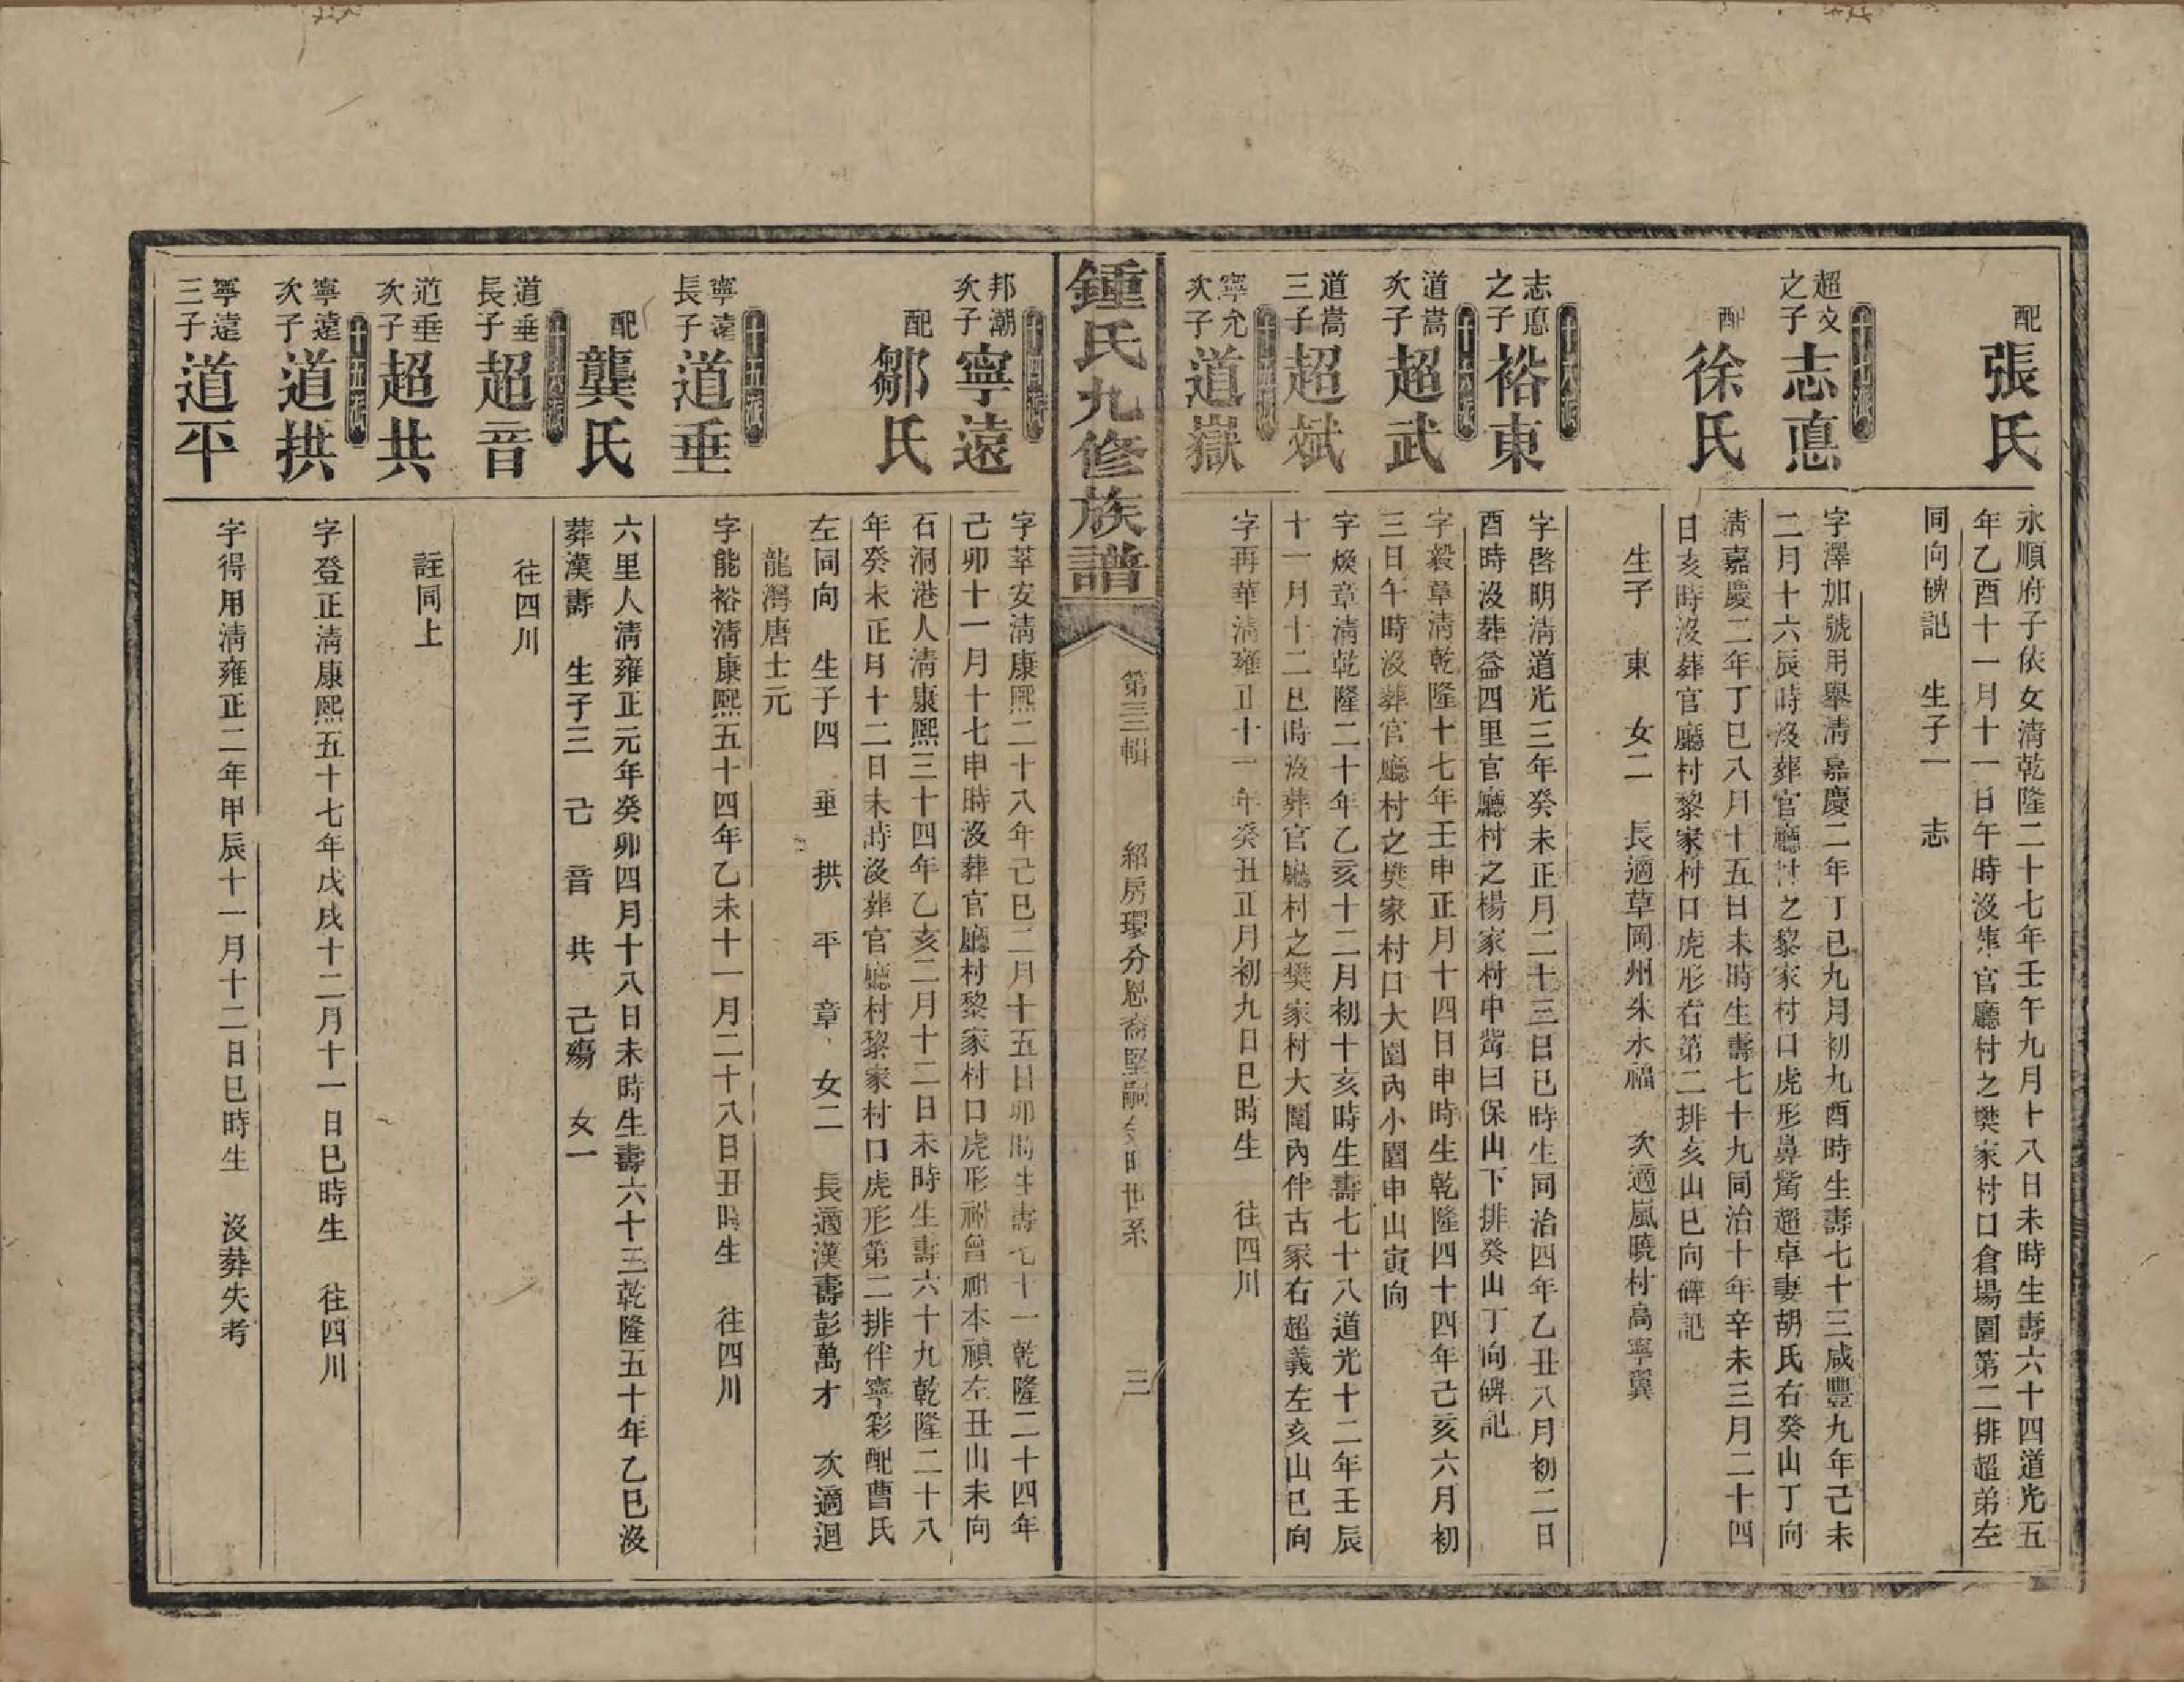 配
張氏
永順府子依女淸乾隆二十七年壬午九月十八日未時生壽六十四道光五
年乙酉十一月十一日午時沒葬官廳村之樊家村口倉場園第二排超弟左
同向碑記　生子一　志
十七派
超文
之子
志悳
字澤加號用舉淸嘉慶二年丁巳九月初九酉時生壽七十三咸豐九年己未
二月十六辰時沒葬官廳村之黎家村口虎形鼻觜超卓妻胡氏右癸山丁向
配
徐氏
淸嘉慶二年丁巳八月十五日未時生壽七十九同治十年辛未三月二十四
日亥時沒葬官廳村黎家村口虎形右第二排亥山巳向碑記
生子　東　女二　長適草岡州朱水福　次適嵐曉村高寧翼
十八派
志悳
之子
裕東
字啓明淸道光三年癸未正月二十三日巳時生同治四年乙丑八月初二日
酉時沒葬益四里官廳村之楊家村中觜曰保山下排癸山丁向碑記
十六派
道嵩
次子
超武
字毅章淸乾隆十七年壬申正月十四日申時生乾隆四十四年己亥六月初
三日午時沒葬官廳村之樊家村口大園內小園申山寅向
道嵩
三子
超斌
字煥章淸乾隆二十年乙亥十二月初十亥時生壽七十八道光十二年壬辰
十一月十二巳時沒葬官廳村之樊家村大園內伴古冢右超義左亥山巳向
十五派
寧允
次子
道嶽
字再華淸雍正十一年癸丑正月初九日巳時生　往四川
鍾氏九修族譜
第三輯
紹房環分恩裔堅嗣世系
三
十四派
邦潮
次子
寧遠
字萃安淸康熙二十八年己巳二月十五日卯時生壽七十一乾隆二十四年
己卯十一月十七申時沒葬官廳村黎家村口虎形祔曾祖本禎左丑山未向
配
鄒氏
石洞港人淸康熙三十四年乙亥二月十二日未時生壽六十九乾隆二十八
年癸未正月十二日未時沒葬官廳村黎家村口虎形第二排伴寧彩配曹氏
左同向　生子四　垂　拱　平　章　女二　長適漢壽彭萬才　次適迴
龍灣唐士元
十五派
寧遠
長子
道垂
字能裕淸康熙五十四年乙未十一月二十八日丑時生　往四川
配
龔氏
六里人淸雍正元年癸卯四月十八日未時生壽六十三乾隆五十年乙巳沒
葬漢壽　生子三　己　音　共　己殤　女一
十六派
道垂
長子
超音
往四川
道垂
次子
超共
註同上
十五派
寧遠
次子
道拱
字登正淸康熙五十七年戊戌十二月十一日巳時生　往四川
寧遠
三子
道平
字得用淸雍正二年甲辰十一月十二日巳時生　沒葬失考